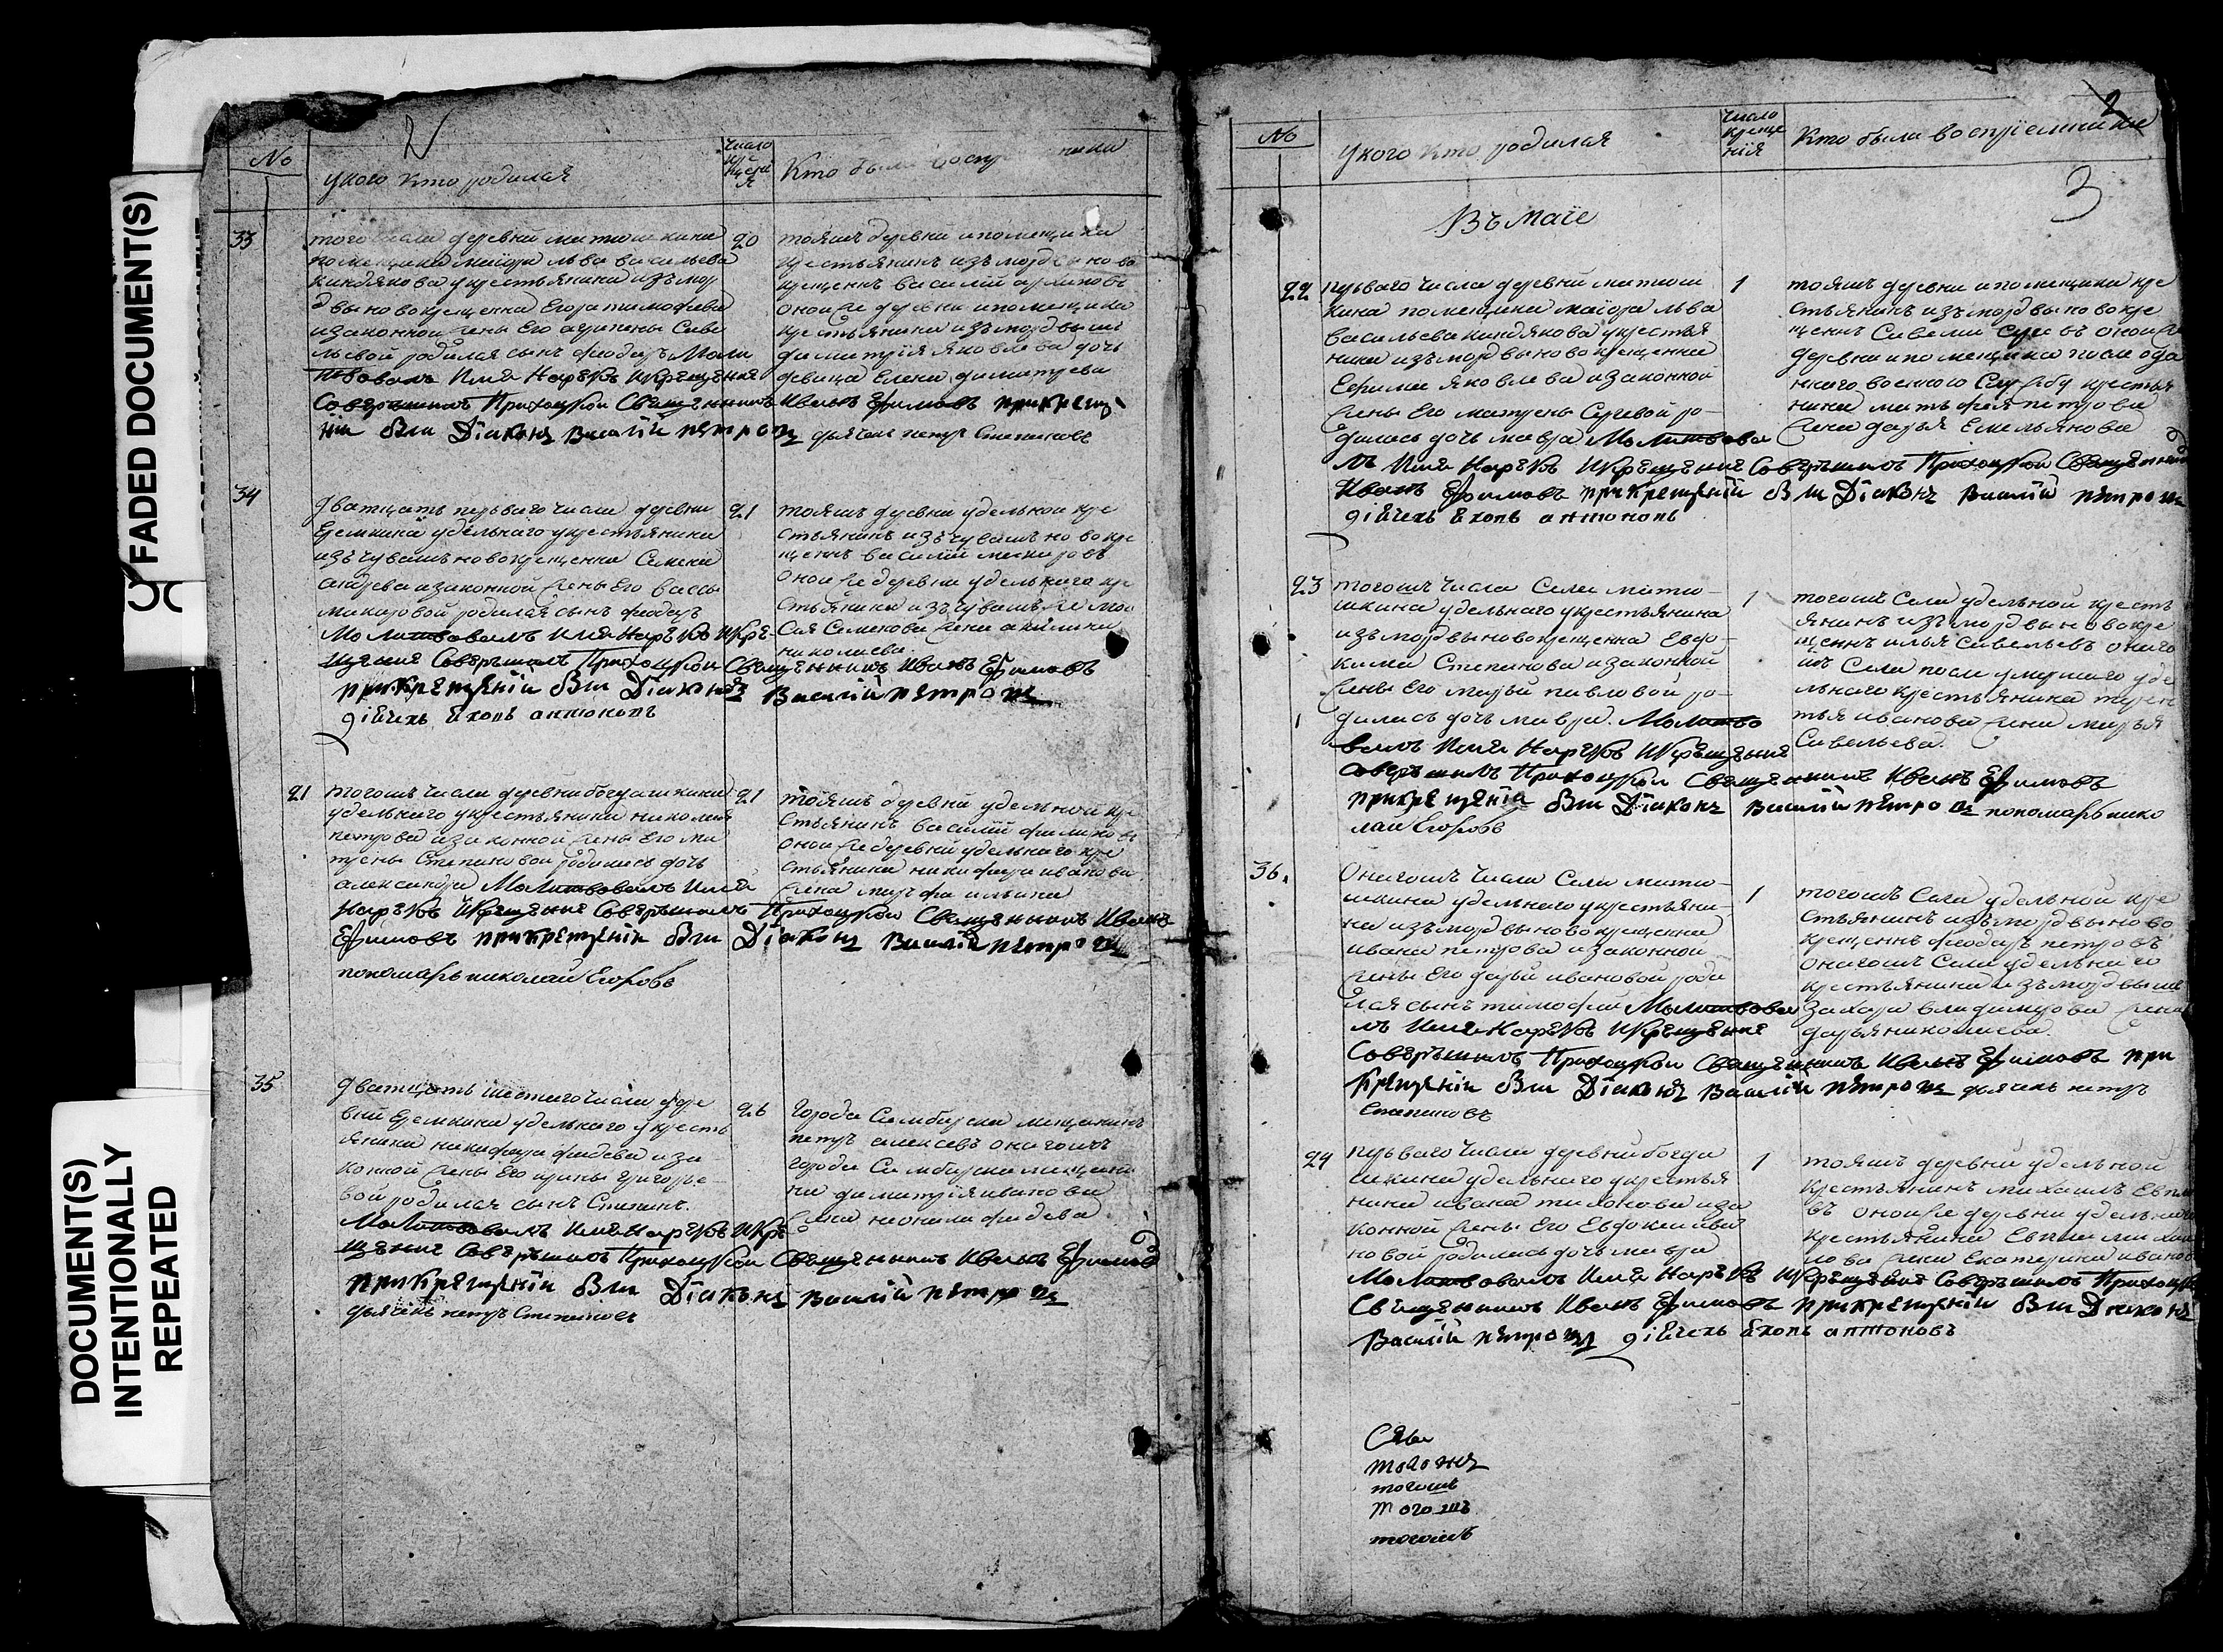 FADED DOCUMENT(S)
DOCUMENT(S)
INTENTIONALLY
REPEATED
2
No
у кого кто родился
число
Кто были
33
того числа деревни матюшкина
помещика маiора льва васильева
киндякова у крестьянина изъ мор
двы новокрещенна Егора тимофеева
и законной жены Его агрипены Саве
льевой родился сынъ феодоръ Моли
твовалъ Имя Нарекъ И Крещение
Совершилъ Приходской Священникъ Иванъ Ефимовъ при Креще
нии был Дiаконъ Василiй петровъ дьячекъ петръ Степановъ
20
тояжъ деревни и помещика
крестьянинъ изъ мордвы ново
крещенъ василiй
оной же деревни и помещика
крестьянина изъ мордвы
димитрiя яковлева дочь
девица Елена димитрева
34
Дватцать перваго числа деревни
Еремкина удельнаго у крестьянина
изъ чувашъ новокрещенна Семена
андреева и законной жены Его васы
макаровой родился сынъ феодоръ
Молитвовалъ Имя Нарекъ И Кре
щение Совершилъ Приходской Священникъ Иванъ Ефимовъ
при Крещенiи был Дiаконъ Василiй петровъ
дiячекъ антоновъ
21
тояжъ деревни удельной кре
стьянинъ изъ чувашъ новокре
щенъ василiй макаровъ
оной же деревни удельнаго кре
стьянина изъ чувашъ же
Семенова жена акилина
николаева.
21
тогожъ числа деревни богдашкина
удельнаго у крестьянина николая
петрова и законной жены Его ма
трены Степановой родилась дочь
александра Молитвовалъ Имя
Нарекъ И Крещение Совершилъ Приходской Священникъ Иванъ
Ефимовъ при Крещенiи был Дiаконъ Василiй петровъ
пономарь николай Егоровъ
21
тояжъ деревни удельной кре
стьянинъ василiй филиповъ
оной же деревни удельнаго кре
стьянина никифора иванова
жена марфа ильина
35
Дватцать шестаго числа дере
вни Еремкина удельнаго у кресть
янина никифора фадева и за
конной жены Его ирины григорье
вой родился сынъ Степанъ.
Молитвовалъ Имя Нарекъ И Кре
щение Совершилъ Приходской Священникъ Иванъ Ефимовъ
при Крещенiи был Дiаконъ Василiй петровъ
дьячекъ петръ Степановъ
26
города Симбирска мещанинъ
петръ алексевъ онагожъ
города Симбирска мещани
на димитрiя иванова
жена неонила фадева
2
3
No
у кого кто родился
число
креще
нiя
Кто были восприемники
Въ маiе
22
перваго числа деревни матюш
кина помещика маiора льва
васильева киндякова у крестья
нина изъ мордвы новокрещенна
Ефима яковлева и законной
жены Его матрены Сергевой ро
дилась дочь мавра Молитвова
лъ Имя Нарекъ И Крещение Совершилъ Приходской Священникъ
Иванъ Ефимовъ при Крещенiи был Дiаконъ Василiй петровъ
дiячекъ антоновъ
1
тояжъ деревни и помещика кре
стьянинъ изъ мордвы новокре
щенъ Савели оной же
деревни и помещика после отда
ннаго военную Службу крестья
нина матфея петрова
жена дарья Емельянова
23
тогожъ числа Села матю
шкина удельнаго у крестьянина
изъ мордвы новокрещенна Евдо
кима Степанова и законной
жены Его марьи павловой ро
дилась дочь мавра. Молитво
валъ Имя Нарекъ И Крещение
Совершилъ Приходской Священникъ Иванъ Ефимовъ
при Крещенiи был Дiаконъ Василiй петровъ пономарь нико
лай Егоровъ
1
тогожъ Села удельной кресть
янинъ изъ мордвы новокре
щенъ илья Савельевъ онаго
жъ Села после умершаго уде
льнаго крестьянина терен
тья иванова жена марья
Савельева.
36.
Онагожъ числа Села матю
шкина удельнаго у крестьяни
на изъ мордвы новокрещенна
ивана петрова и законной
жены Его дарьи ивановой роди
лся сынъ тимофей Молитвова
лъ Имя Нарекъ И Крещение
Совершилъ Приходской Священникъ Иванъ Ефимовъ при
Крещенiи был Дiаконъ Василiй петровъ дьячекъ петръ
Степановъ
1
тогожъ Села удельной кре
стьянинъ изъ мордвы ново
крещенъ феодоръ петровъ
онагожъ Села удельнаго
крестьянина изъ мордвы
Захара владимерова жена
дарья николаева
24
перваго числа деревни богда
шкина удельнаго у крестья
нина ивана тихонова и за
конной жены Его Евдокеи ива
новой родилась дочь мавра
Молитвовалъ Имя Нарекъ И Крещение Совершилъ Приходской
Священникъ Иванъ Ефимовъ при Крещенiи был Дiаконъ
Василiй петровъ дiячекъ антоновъ
1
тояжъ деревни удельной
крестьянинъ михаилъ
оной же деревни удельнаго
крестьянина
жена Екатерина иванова
тогожъ
тогожъ
тогожъ
тогожъ